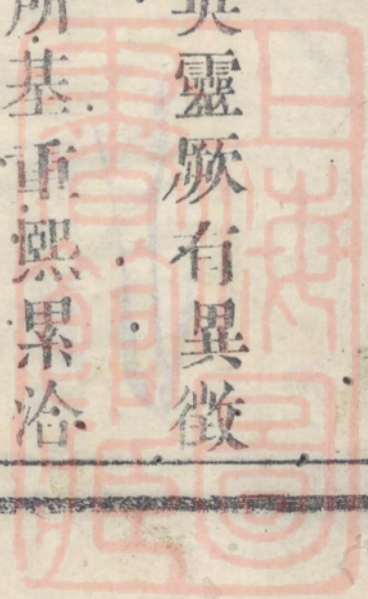 英靈厥有異徵
所基重熙累洽
上海圖
書館藏